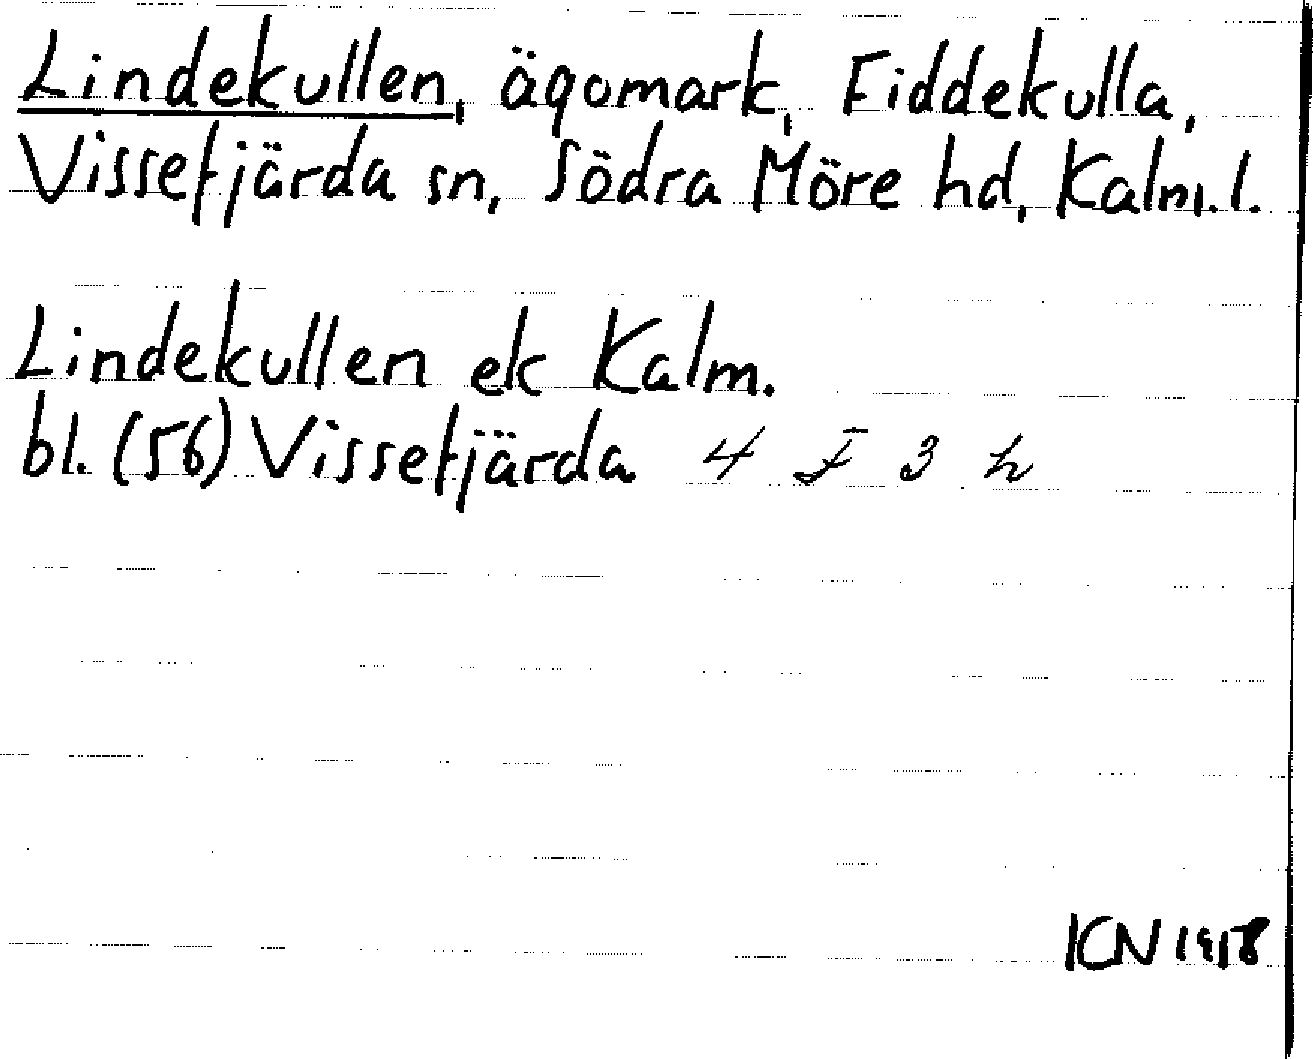 Lindekullen, ägomark, Fiddekulla,
Vissefjärda sn, Södra Möre hd, Kalm.l.
Lindekullen ek Kalm.
bl. (56) Vissefjärda 4 F 3 h
KN